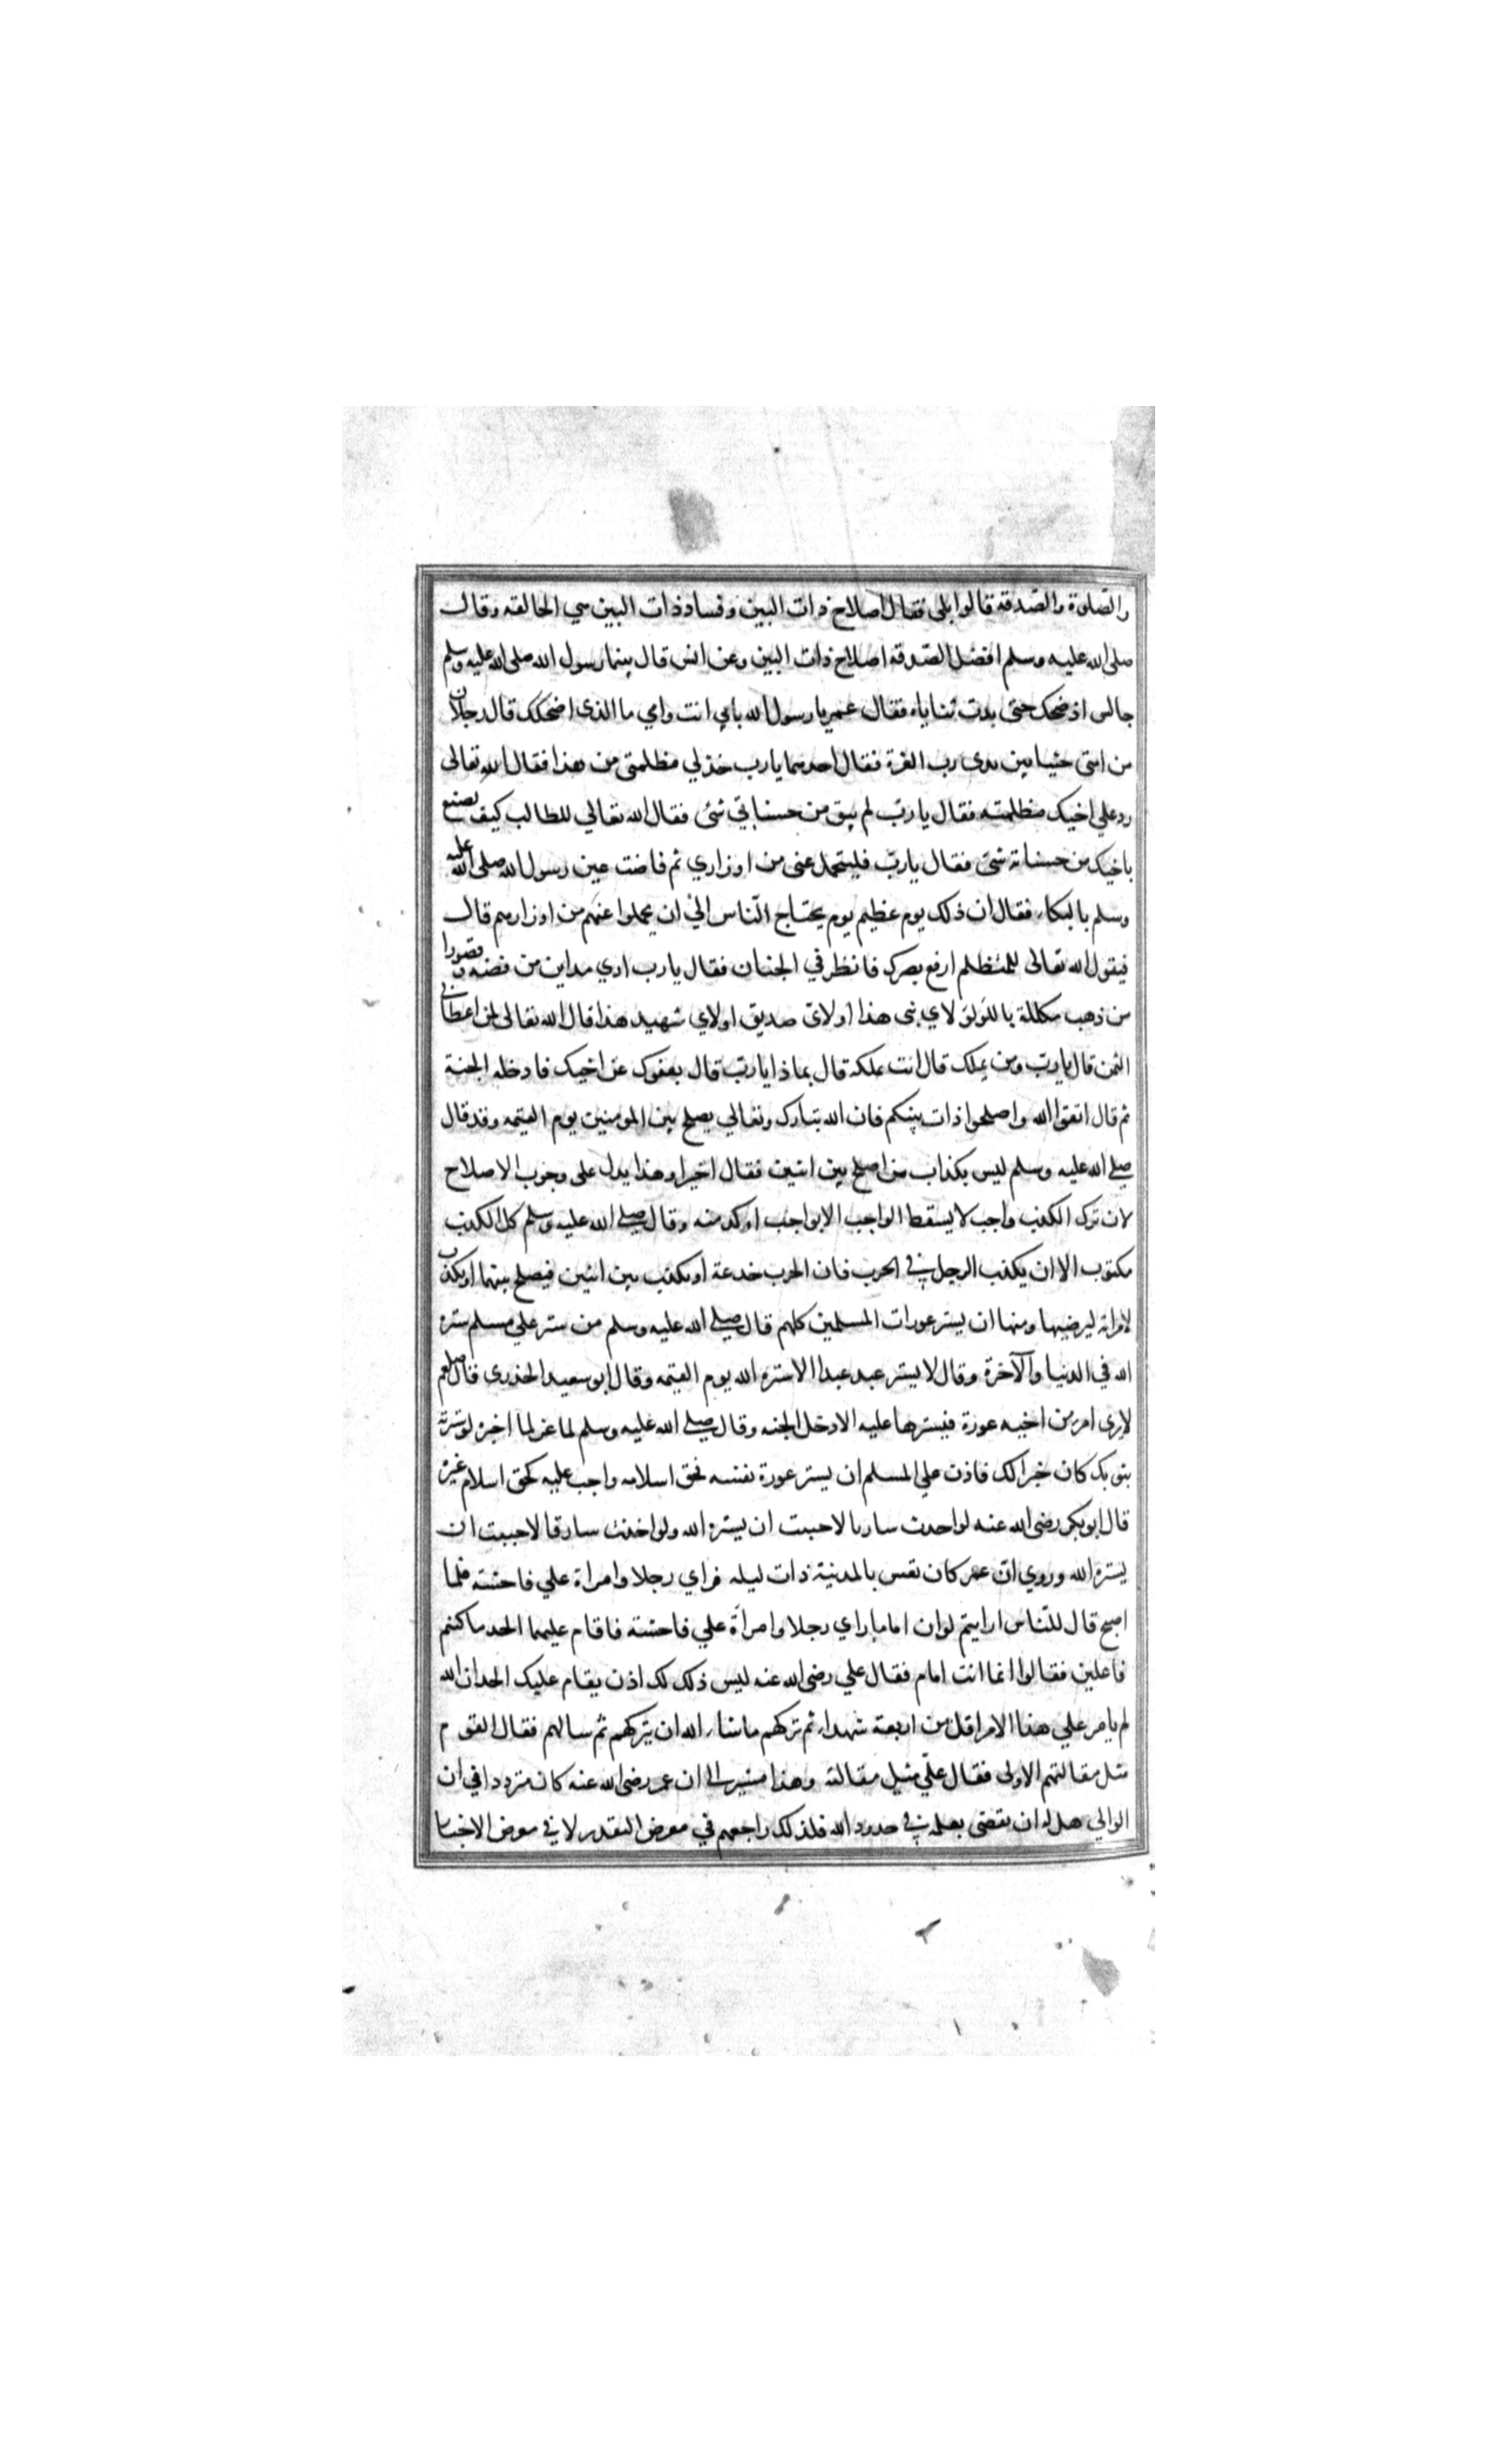 والصلوة والصدقة قالوا بلى فقال اصلاح ذات البين وفساد ذات البين هي الحالقه وقال
صلى الله عليه وسلم افضل الصدقة اصلاح ذات البين وعن انس قال بينما رسول الله صلى الله عليه وسلم
جالس اذ ضحك حتى بدت ثناياه فقال عمر يا رسول الله بابي انت وامي ما الذى اضحكك قال رجلان
من امتى جثيا بين يدى رب العزة فقال احدهما يا رب خذلي مظلمتى من هذا فقال الله تعالى
رد على اخيك مظلمته فقال يا رب لم يبق من حسناتي شئ فقال الله تعالي للطالب كيف تصنع
باخيك من حسناته شئ فقال يا رب فليتحمل عنى من اوزاري ثم فاضت عين رسول الله صلى الله عليه
وسلم بالبكاء فقال ان ذلك يوم عظيم يوم يحتاج الناس الي ان يحملوا عنهم من اوزارهم قال
فيقول الله تعالى للمتظلم ارفع بصرك فانظر في الجنان فقال يا رب ارى مداين من فضه وقصورا
من ذهب مكللة باللولؤ لاي نبى هذا اولاى صديق اولاي شهيد هذا قال الله تعالى لمن اعطانى
الثمن قال يا رب ومن يملك قال انت تملكه قال بماذا يا رب قال بعفوك عن اخيك فادخله الجنة
ثم قال اتقوا الله واصلحوا ذات بينكم فان الله تبارك وتعالي يصلح بين المومنين يوم القيمه وقد قال
صلي الله عليه وسلم ليس بكذاب من اصلح بين اثنين فقال خيرا وهذا يدل على وجوب الاصلاح
لان ترك الكذب واجب لا يسقط الواجب الا بواجب اوكد منه وقال صلي الله عليه وسلم كل الكذب
مكتوب الا ان يكذب الرجل في الحرب فان الحرب خدعة او يكذب بين اثنين فيصلح بينهما او يكذب
لامراته ليرضيها ومنها ان يستر عورات المسلمين كلهم قال صلي الله عليه وسلم من ستر علي مسلم ستره
الله في الدنيا والآخرة وقال لا يستر عبد عبدا الا ستره الله يوم القيمه وقال ابو سعيد الخدرى قال صلعم
لا يرى امر من اخيه عورة فيسترها عليه الا دخل الجنه وقال صلي الله عليه وسلم لماعز لما اخبره لو سترته
بثوبك كان خيرا لك فاذن علي المسلم ان يستر عورة نفسه فحق اسلامه واجب عليه كحق اسلام غيره
قال ابو بكر رضى الله عنه لو اخذت ساربا لاحببت ان يستره الله ولو اخذت سارقا لاحببت ان
يستره الله وروي ان عمر كان يعس بالمدنية ذات ليله فراي رجلا وامراة علي فاحشته فلما
اصبح قال للناس ارايتم لو ان اماما راي رجلا وامراة علي فاحشته فاقام عليهما الحد ما كنتم
فاعلين فقالوا انما انت امام فقال علي رضى الله عنه ليس ذلك لك اذن يقام عليك الحد ان الله
لم يامر علي هذا الامر اقل من اربعة شهداء ثم تركهم ما شاء الله ان يتركهم ثم سالهم فقال القوم
مثل مقالتهم الاولى فقال علي مثل مقالته وهذا مشير الى ان عمر رضى الله عنه كان مترددا في ان
الوالي هل له ان يقضى بعلمه في حدود الله فلذلك راجعهم في معرض التقدير لا في معرض الاخبار